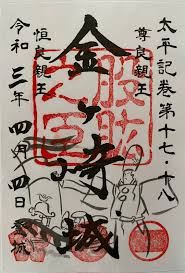 太平記巻第十七・十八
尊良親王
金ヶ崎城
恒良親王
令和三年四月四日
登城
股肱之臣